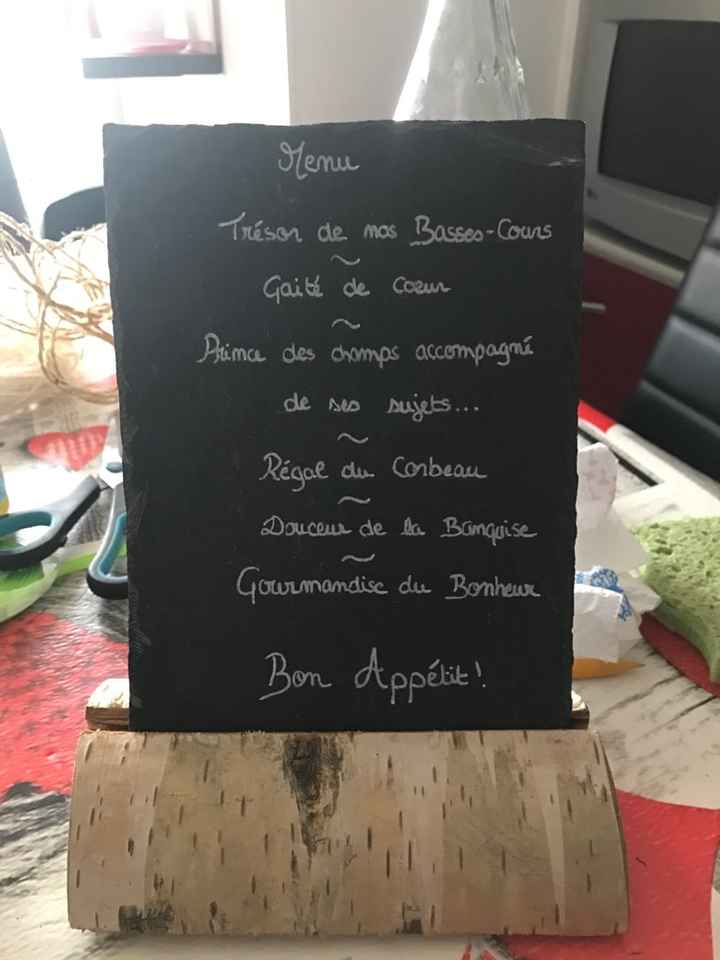 Menu
Trésor de nos Basses-Cours
~
Gaité de Coeur
~
Prince des champs accompagné
de ses sujets...
~
Régal du Corbeau
~
Douceur de la Banquise
~
Gourmandise du Bonheur
Bon Appétit!